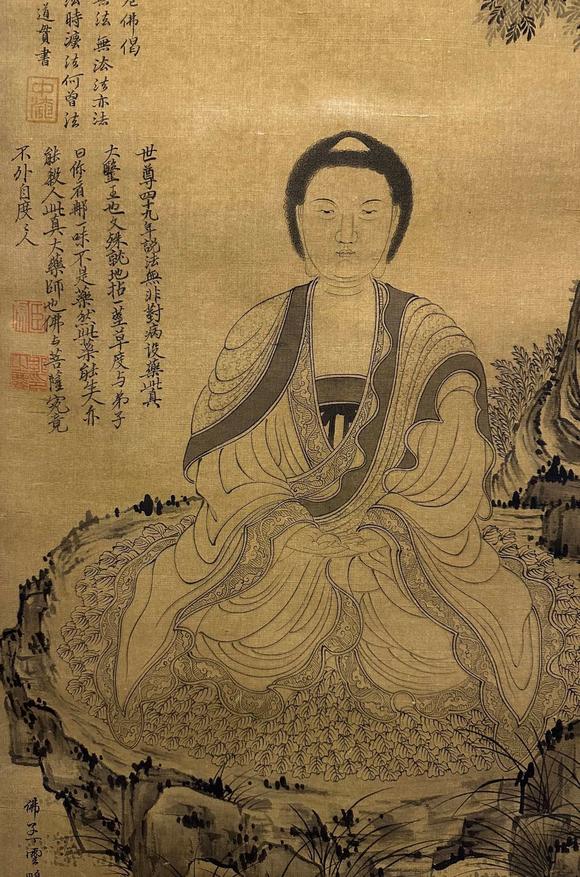 尼佛偈
無法無法法亦法
法時灋法何曾法
道貫書
世尊四十九年說法無非對病設藥此真
大醫王也文殊就地拈一莖草度与弟子
曰你看那一味不是藥然此藥能生人亦
能殺人此真大藥師也佛与菩薩究竟
不外自度々人
佛子丁雲鵬